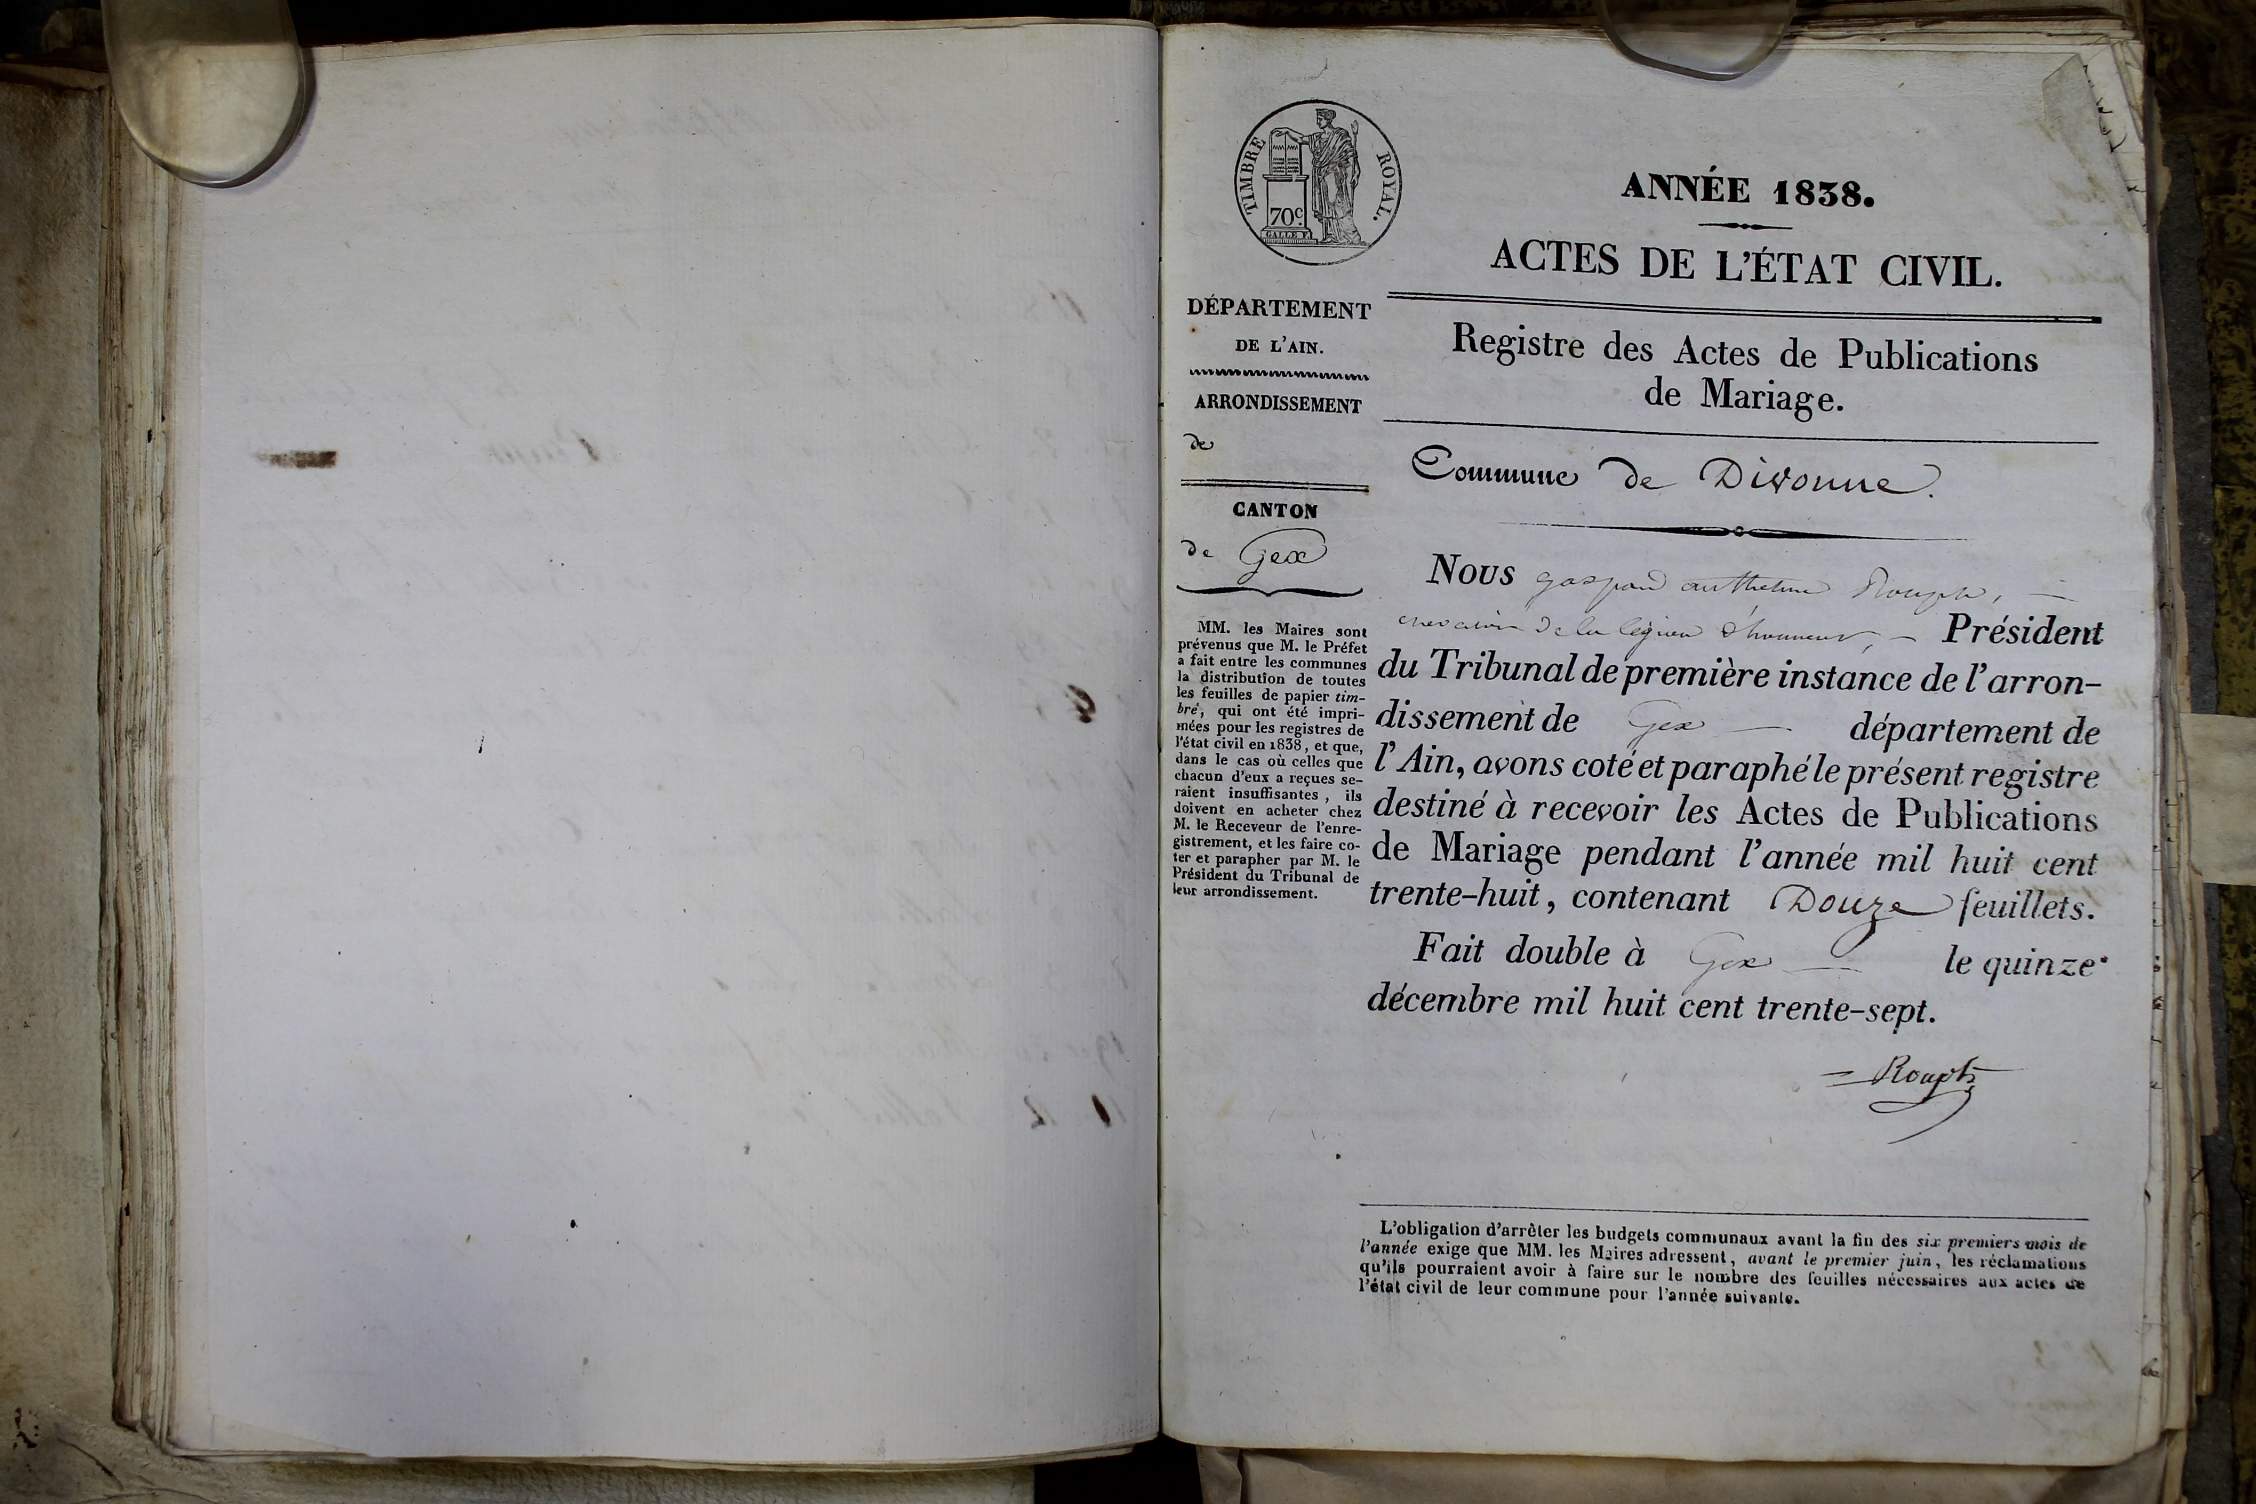 TIMBRE ROYAL.
70c.
GALLE F.
ANNÉE 1838.
ACTES DE L'ÉTAT CIVIL.
Registre des Actes de Publications
de Mariage.
DÉPARTEMENT
DE L'AIN.
ARRONDISSEMENT
de
CANTON
de Gex
MM. les Maires sont
prévenus que M. le Préfet
a fait entre les communes
la distribution de toutes
les feuilles de papier tim-
bré, qui ont été impri-
mées pour les registres de
l'état civil en 1838, et que,
dans le cas où celles que
chacun d'eux a reçues se-
raient insuffisantes, ils
doivent en acheter chez
M. le Receveur de l'enre-
gistrement, et les faire co-
ter et parapher par M. le
Président du Tribunal de
leur arrondissement.
Commune de Divonne.
Nous gaspard anthelme Rouph,
chevalier de la légion d'honneur, Président
du Tribunal de première instance de l'arron-
dissement de Gex département de
l'Ain, avons coté et paraphé le présent registre
destiné à recevoir les Actes de Publications
de Mariage pendant l'année mil huit cent
trente-huit, contenant Douze feuillets.
Fait double à Gex le quinze
décembre mil huit cent trente-sept.
Rouph
L'obligation d'arrêter les budgets communaux avant la fin des six premiers mois de
l'année exige que MM. les Maires adressent, avant le premier juin, les réclamations
qu'ils pourraient avoir à faire sur le nombre des feuilles nécessaires aux actes de
l'état civil de leur commune pour l'année suivante.